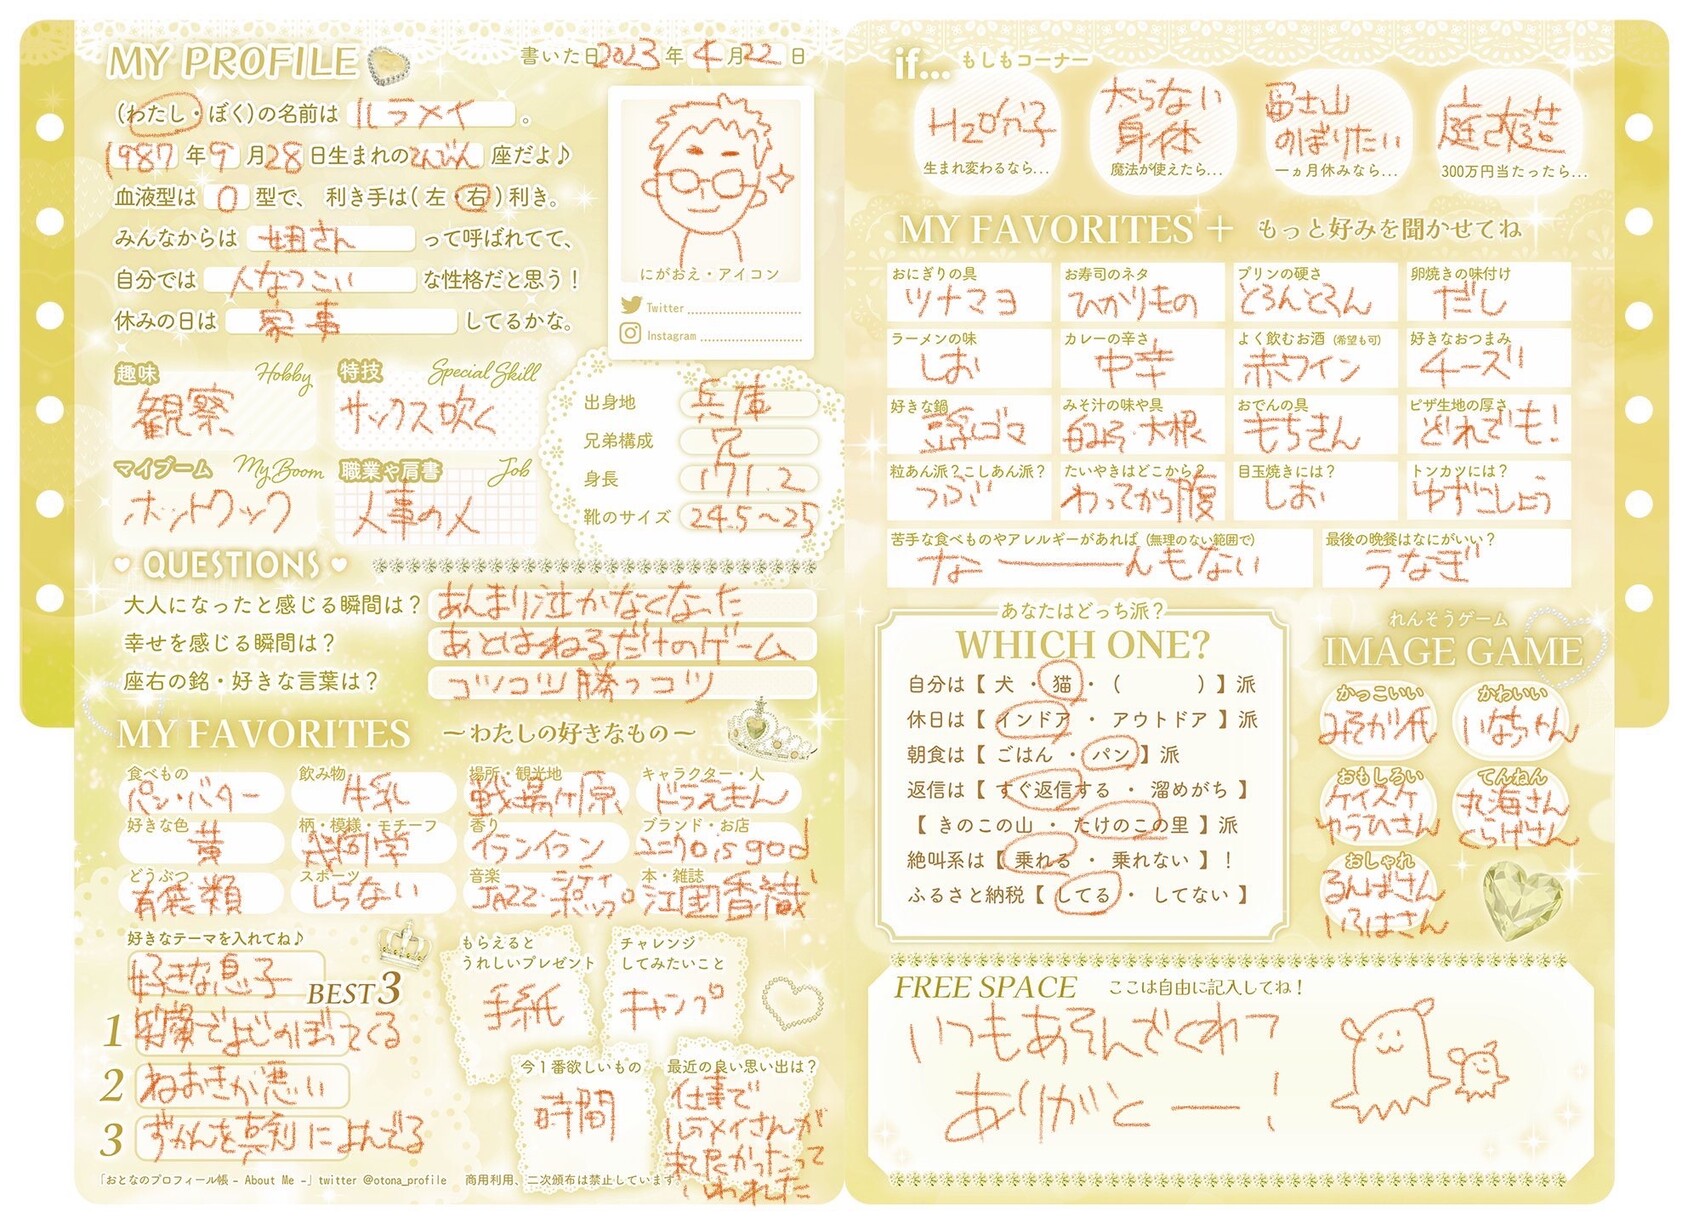 MY PROFILE
書いた日2023年4月22日
(わたし・ぼく)の名前は ルラメイ 。
1987年9月28日生まれのてんびん座だよ♪
血液型は O 型で、 利き手は( 左・右 )利き。
みんなからは 姐さん って呼ばれてて、
自分では 人なつこい な性格だと思う！
休みの日は 家事 してるかな。
にがおえ・アイコン
Twitter
Instagram
趣味 Hobby
観察
特技 Special Skill
サックス吹く
マイブーム My Boom
ホットクック
職業や肩書 Job
人事の人
出身地 兵庫
兄弟構成 兄
身長 171.2
靴のサイズ 24.5～25
QUESTIONS
大人になったと感じる瞬間は？ あんまり泣かなくなった
幸せを感じる瞬間は？ あとはねるだけのゲーム
座右の銘・好きな言葉は？ コツコツ勝つコツ
MY FAVORITES ～わたしの好きなもの～
食べもの パン・バター
飲み物 牛乳
場所・観光地 戦場ヶ原
キャラクター・人 ドラえもん
好きな色 黄
柄・模様・モチーフ 幾何学
香り イランイラン
ブランド・お店 ユニクロ is god
どうぶつ 有袋類
スポーツ しらない
音楽 JAZZ・
本・雑誌 江國香織
好きなテーマを入れてね♪
好きな息子
BEST3
1 笑顔でよじのぼってくる
2 ねおきが悪い
3 ずかんを真剣によんでる
もらえると
うれしいプレゼント
手紙
チャレンジ
してみたいこと
キャンプ
今1番欲しいもの
時間
最近の良い思い出は？
仕事で
ルラメイさんが
来て良かったって
いわれた
「おとなのプロフィール帳 - About Me -」twitter @otona_profile 商用利用、二次頒布は禁止しています。
if... もしもコーナー
H2O分子
生まれ変わるなら...
太らない
身体
魔法が使えたら...
富士山
のぼりたい
一ヵ月休みなら...
庭改造
300万円当たったら...
MY FAVORITES + もっと好みを聞かせてね
おにぎりの具 ツナマヨ
お寿司のネタ ひかりもの
プリンの硬さ とろんとろん
卵焼きの味付け だし
ラーメンの味 しお
カレーの辛さ 中辛
よく飲むお酒 (希望も可) 赤ワイン
好きなおつまみ チーズ！
好きな鍋 豆乳ゴマ
みそ汁の味や具 白みそ・大根
おでんの具 もちきん
ピザ生地の厚さ どれでも！
粒あん派？こしあん派？ つぶ
たいやきはどこから？ わってから腹
目玉焼きには？ しお
トンカツには？ ゆずこしょう
苦手な食べものやアレルギーがあれば (無理のない範囲で) なーーーんもない
最後の晩餐はなにがいい？ うなぎ
あなたはどっち派？
WHICH ONE?
自分は【 犬 ・ 猫 ・ ( ) 】派
休日は【 インドア ・ アウトドア 】派
朝食は【 ごはん ・ パン 】派
返信は【 すぐ返信する ・ 溜めがち 】
【 きのこの山 ・ たけのこの里 】派
絶叫系は【 乗れる ・ 乗れない 】！
ふるさと納税【 してる ・ してない 】
れんそうゲーム
IMAGE GAME
かっこいい
みそカツ氏
かわいい
いなちゃん
おもしろい
ケイスケ
ゆうひさん
てんねん
丸海さん
くらげさん
おしゃれ
るんばさん
いろはさん
FREE SPACE ここは自由に記入してね！
いつもあそんでくれて
ありがとー！